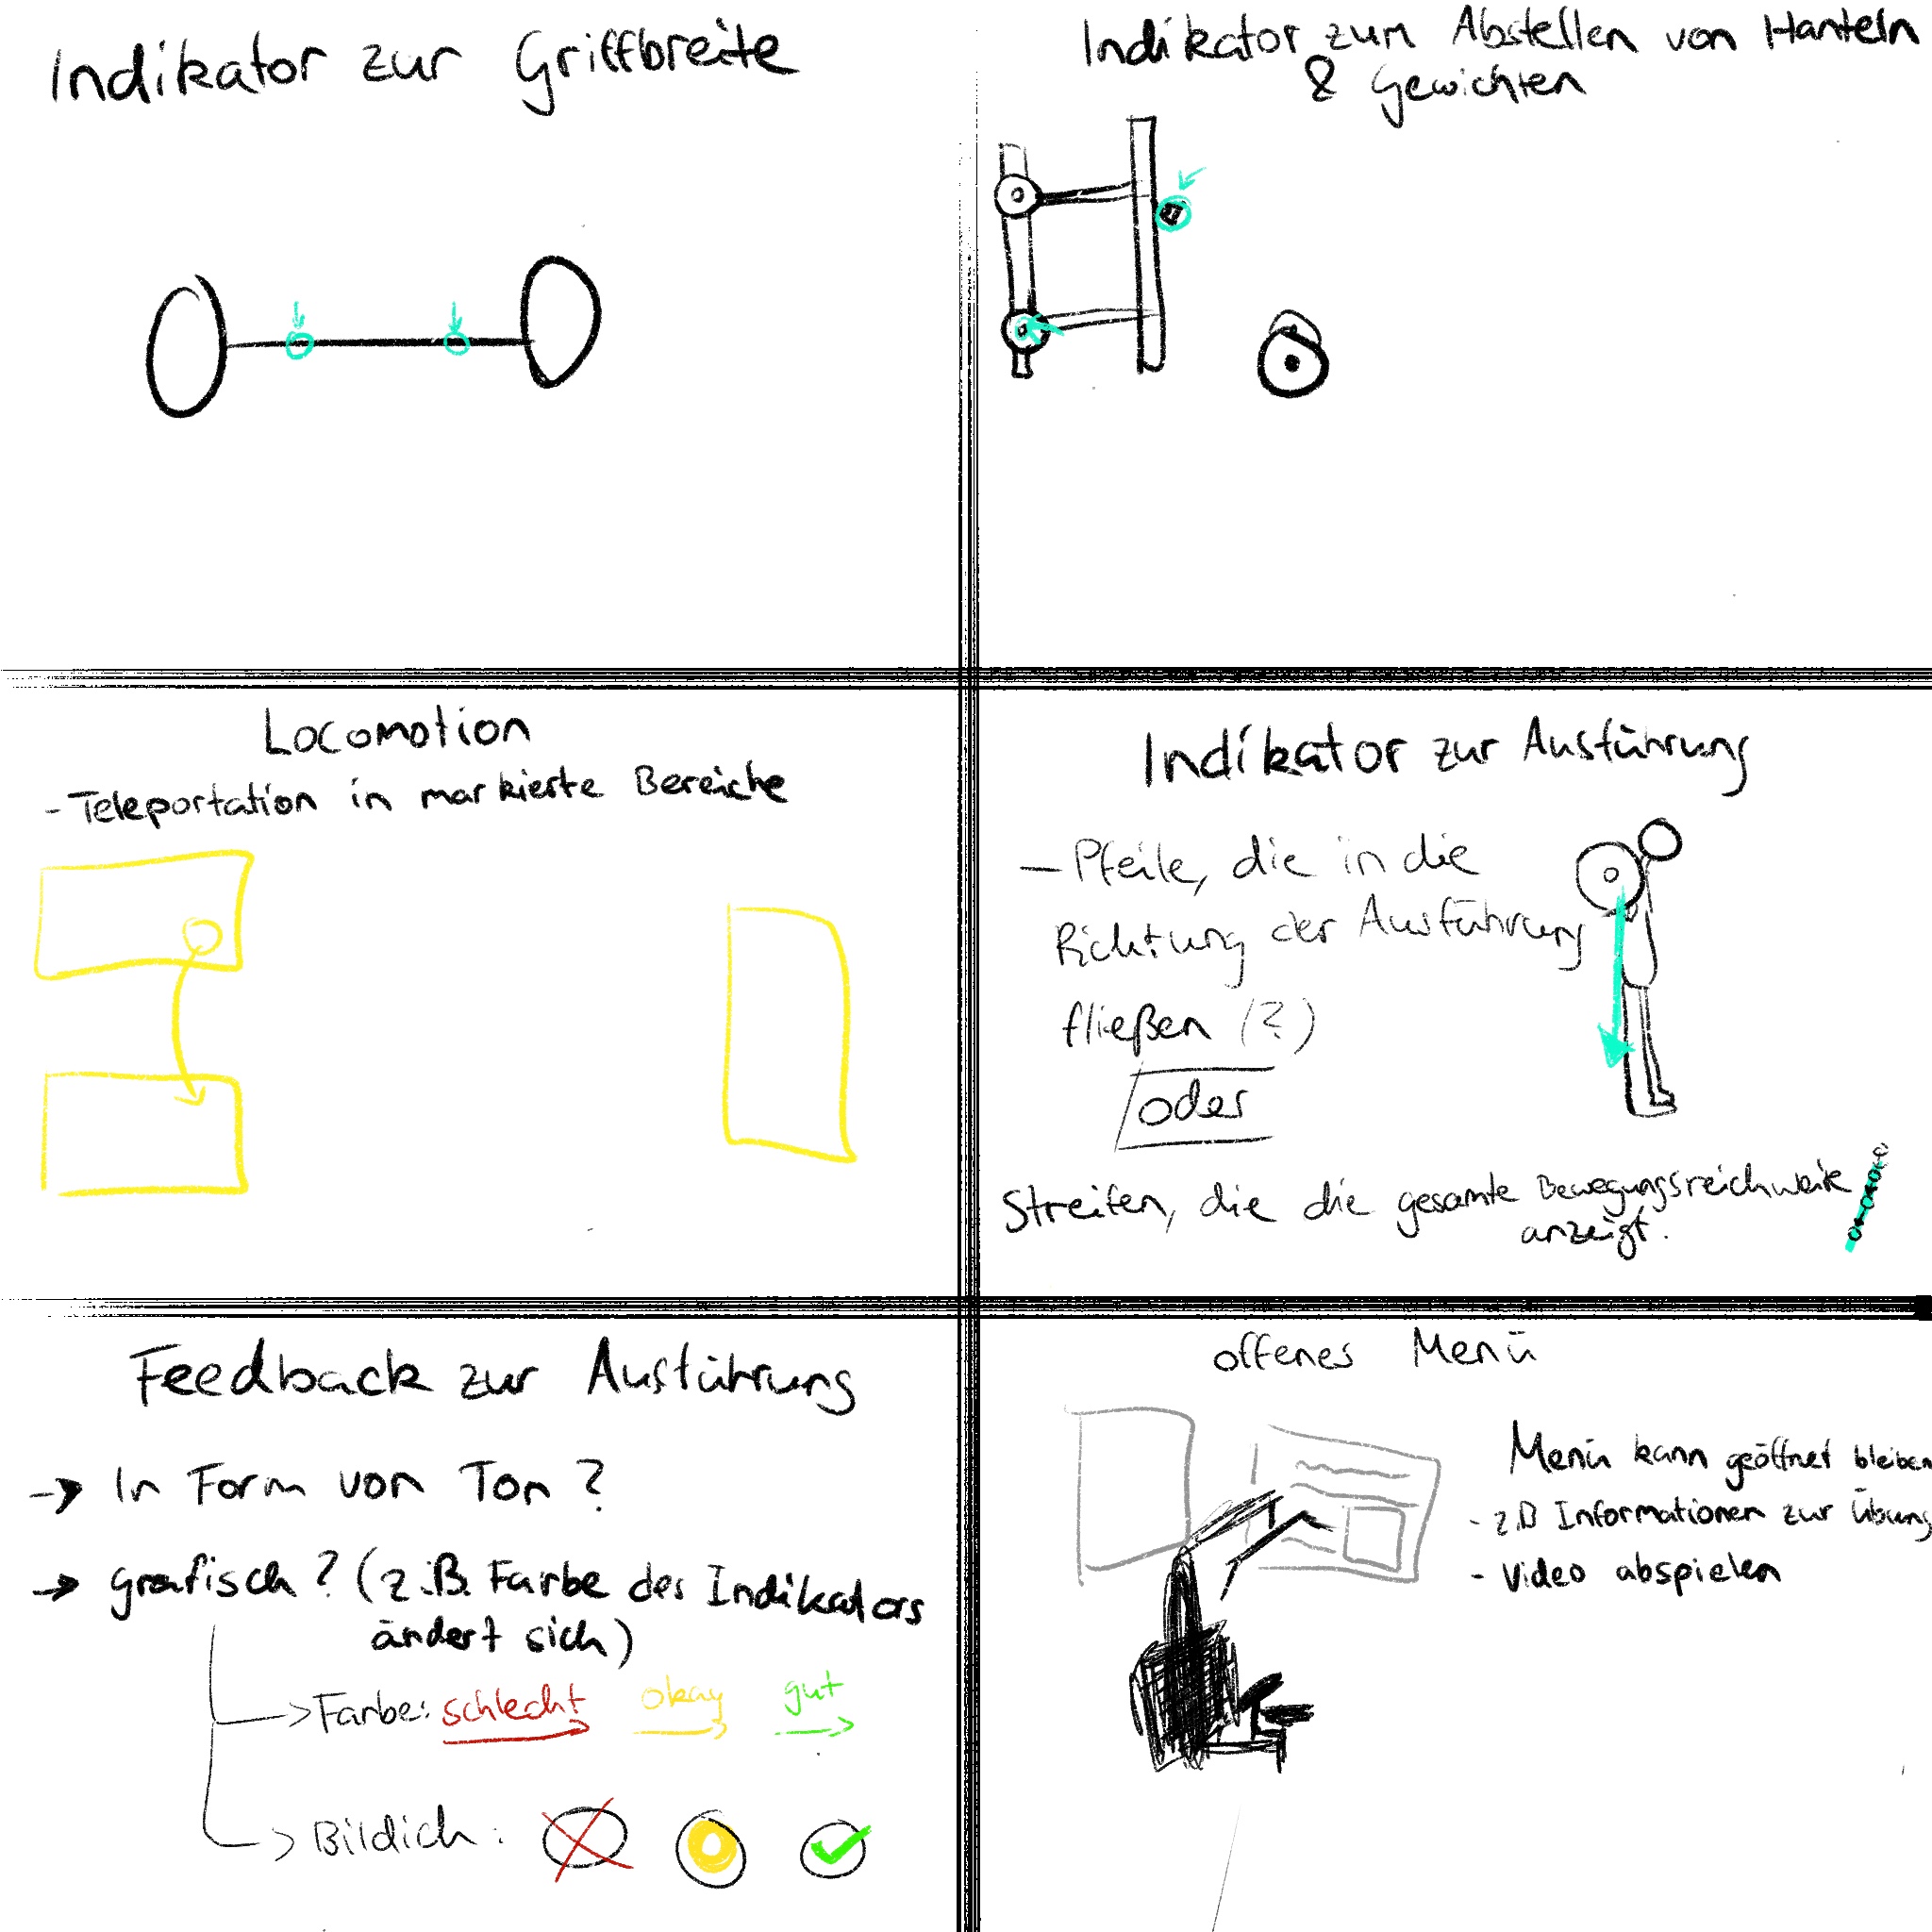 Indikator zur Griffbreite
Indikator zum Abstellen von Hanteln
& Gewichten
Locomotion
- Teleportation in markierte Bereiche
Indikator zur Ausführung
- Pfeile, die in die
Richtung der Ausführung
fließen (?)
oder
Streifen, die die gesamte Bewegungsreichweite
anzeigt.
Feedback zur Ausführung
→ In Form von Ton?
→ grafisch? (z.B. Farbe des Indikators
ändert sich)
→ Farbe: schlecht okay gut
→ Bildich:
offenes Menü
Menü kann geöffnet bleiben
- z.B Informationen zur Übung
- Video abspielen